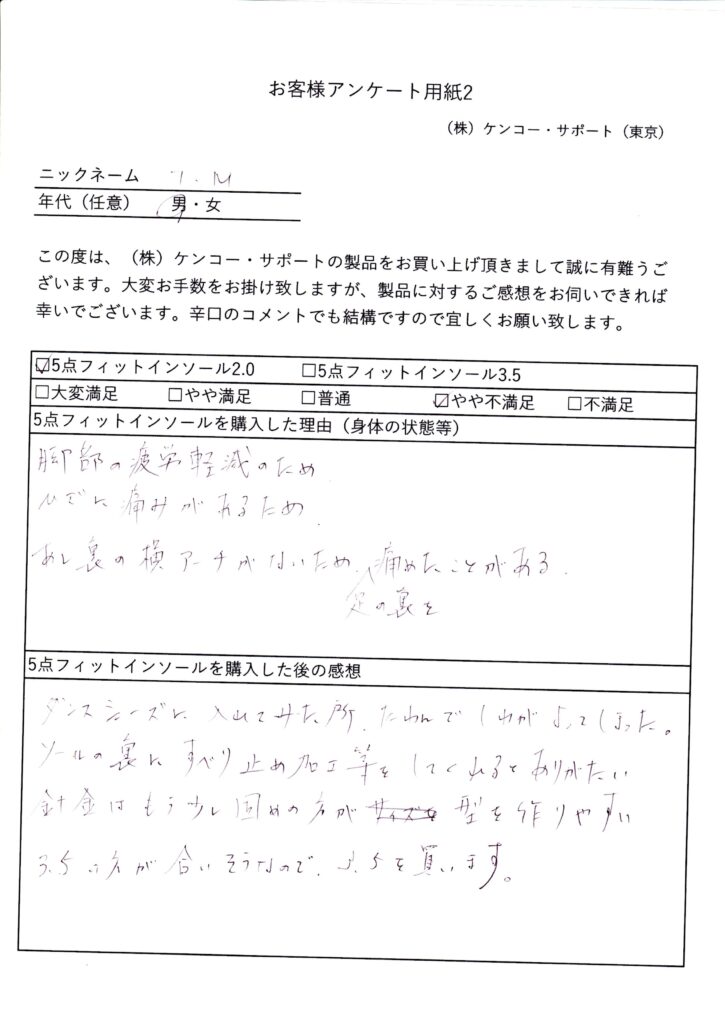 お客様アンケート用紙2
（株）ケンコー・サポート（東京）
ニックネーム T.M
年代（任意） 男・女
この度は、（株）ケンコー・サポートの製品をお買い上げ頂きまして誠に有難うご
ざいます。大変お手数をお掛け致しますが、製品に対するご感想をお伺いできれば
幸いでございます。辛口のコメントでも結構ですので宜しくお願い致します。
☑5点フィットインソール2.0 □5点フィットインソール3.5
□大変満足 □やや満足 □普通 ☑やや不満足 □不満足
5点フィットインソールを購入した理由（身体の状態等）
脚部の疲労軽減のため
ひざに痛みがあるため
あし裏の横アーチがないため、痛めたことがある.
足の裏を
5点フィットインソールを購入した後の感想
ダンスシューズに入れてみた所、たわんでしわがよってしまった。
ソールの裏にすべり止め加工等をしてくれるとありがたい
針金はもう少し固めの方が サイズを 型を作りやすい
3.5の方が合いそうなので、3.5を買います。